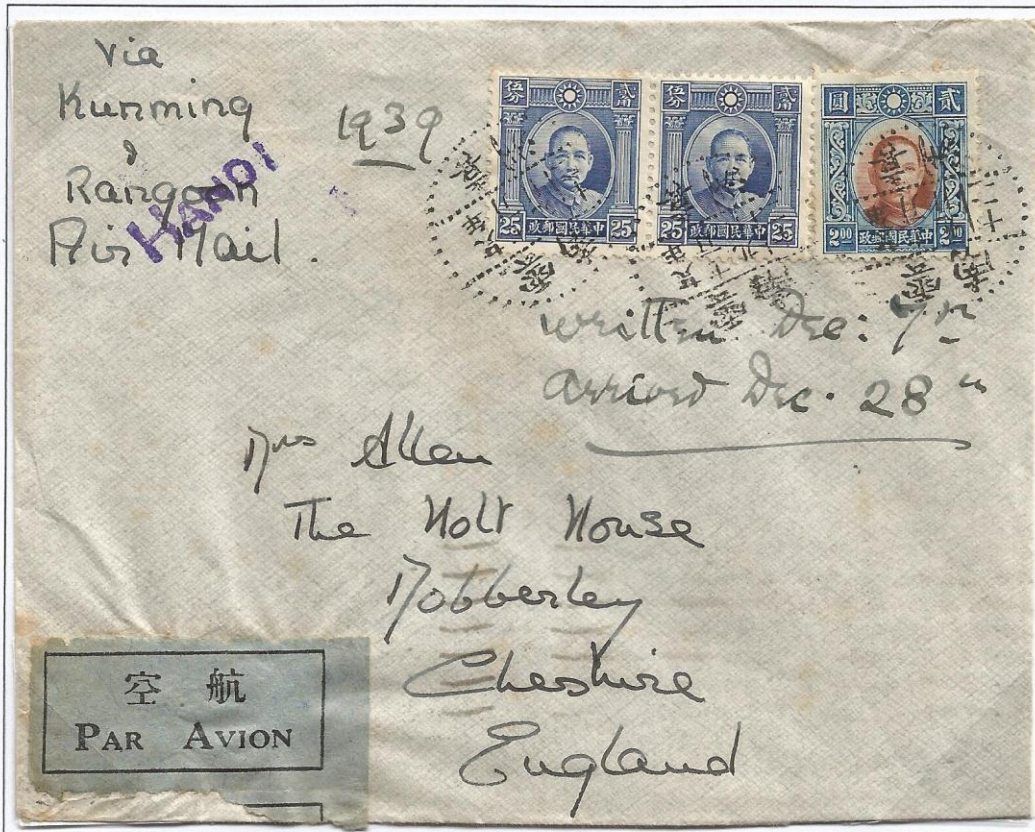 via
Kunming
&
Rangoon
Air Mail.
HANOI
1939
伍分 貳角
25 政郵國民華中 25
伍分 貳角
25 政郵國民華中 25
圓 貳
2.00 政郵國民華中 2.00
written Dec: 7th
arrived Dec. 28th
Mrs Allen
The Holt House
Mobberley
Cheshire
England
空 航
PAR AVION